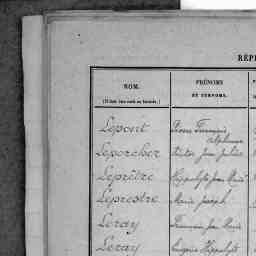 RÉP
NOM.
PRÉNOMS
ET SURNOMS.
Lepont Pierre François
Alphonse
Leporcher Victor Jean Julien
Leprêtre Hippolyte Jean Marie
Leprestre Marie Joseph
Leray François Jean Marie
Leray Eugène Hippolyte